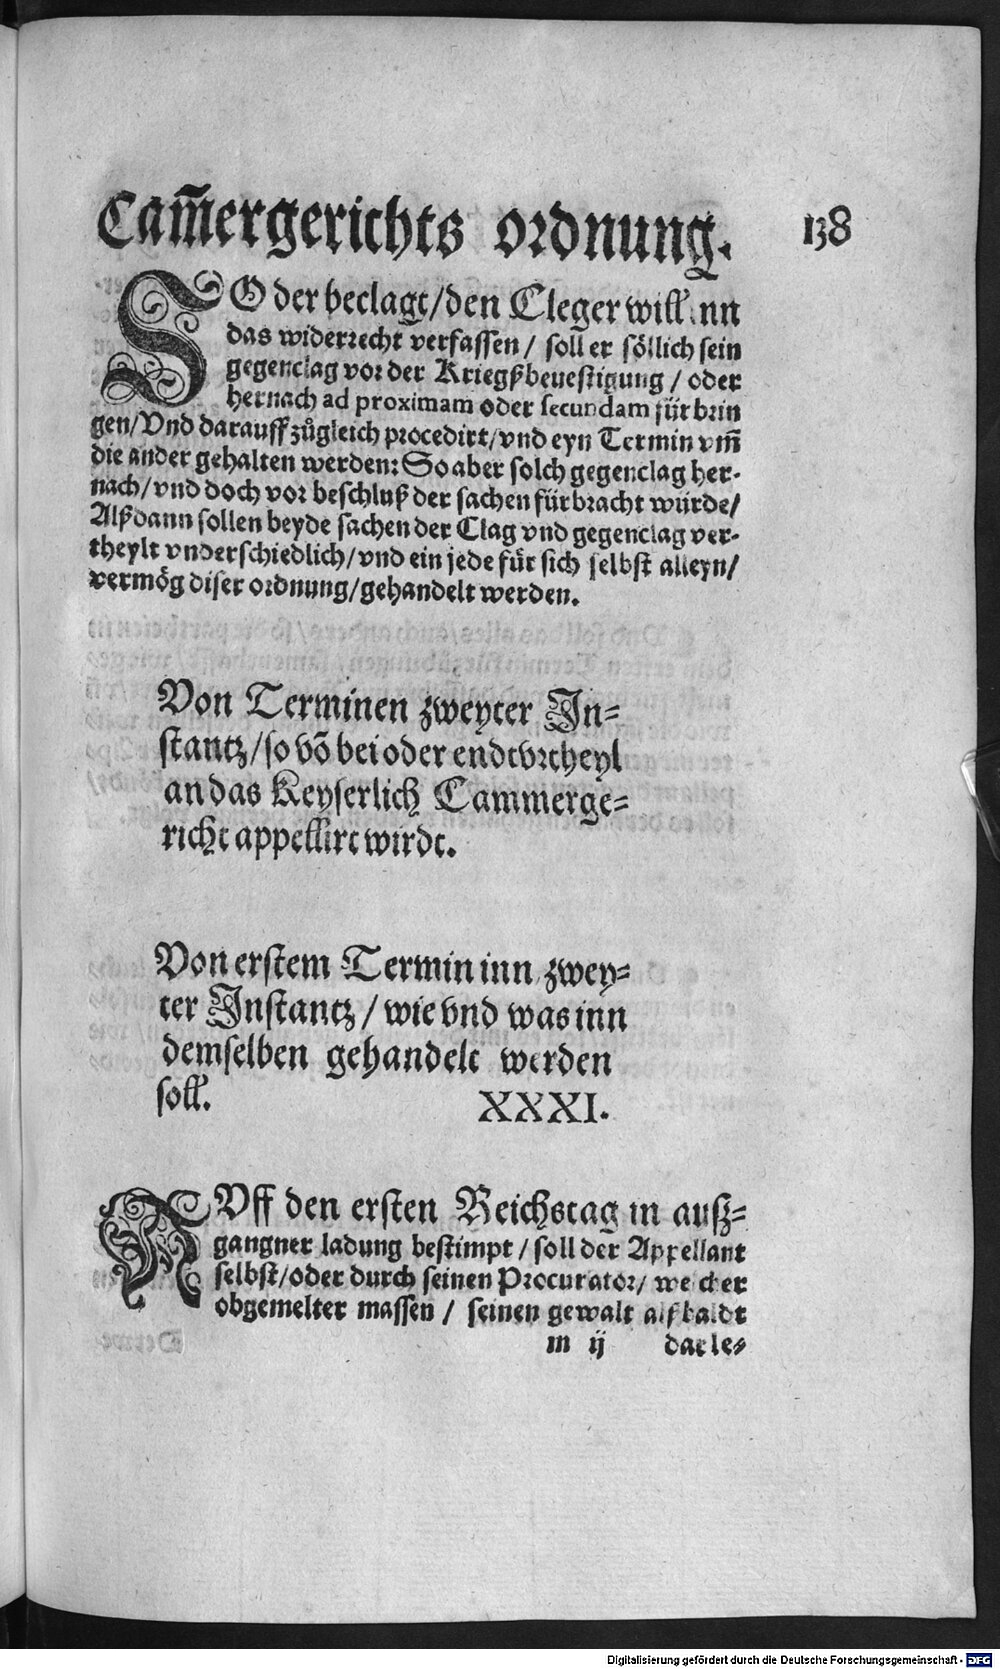 Cam̃ergerichts ordnung.
138
SO der beclagt/den Cleger will inn
das widerrecht verfassen / soll er söllich sein
gegenclag vor der Kriegßbeuestigung / oder
hernach ad proximam oder secundam für brin
gen/Vnd darauff zůgleich procedirt/vnd eyn Termin vm̃
die ander gehalten werden: So aber solch gegenclag her-
nach/vnd doch vor beschluß der sachen fürbracht würde/
Alßdann sollen beyde sachen der Clag vnd gegenclag ver-
theylt vnderschiedlich/vnd ein jede für sich selbst alleyn/
vermög diser ordnung/gehandelt werden.
Von Terminen zweyter In=
stantz/so vō bei oder endtvrtheyl
an das Keyserlich Cammerge=
richt appellirt wirdt.
Von erstem Termin inn zwey=
ter Instantz / wie vnd was inn
demselben gehandelt werden
soll. XXXI.
VFf den ersten Reichstag in auß=
gangner ladung bestimpt / soll der Appellant
selbst/oder durch seinen Procurator/ welcher
obgemelter massen / seinen gewalt alßbaldt
m ij darle=
Digitalisierung gefördert durch die Deutsche Forschungsgemeinschaft - DFG